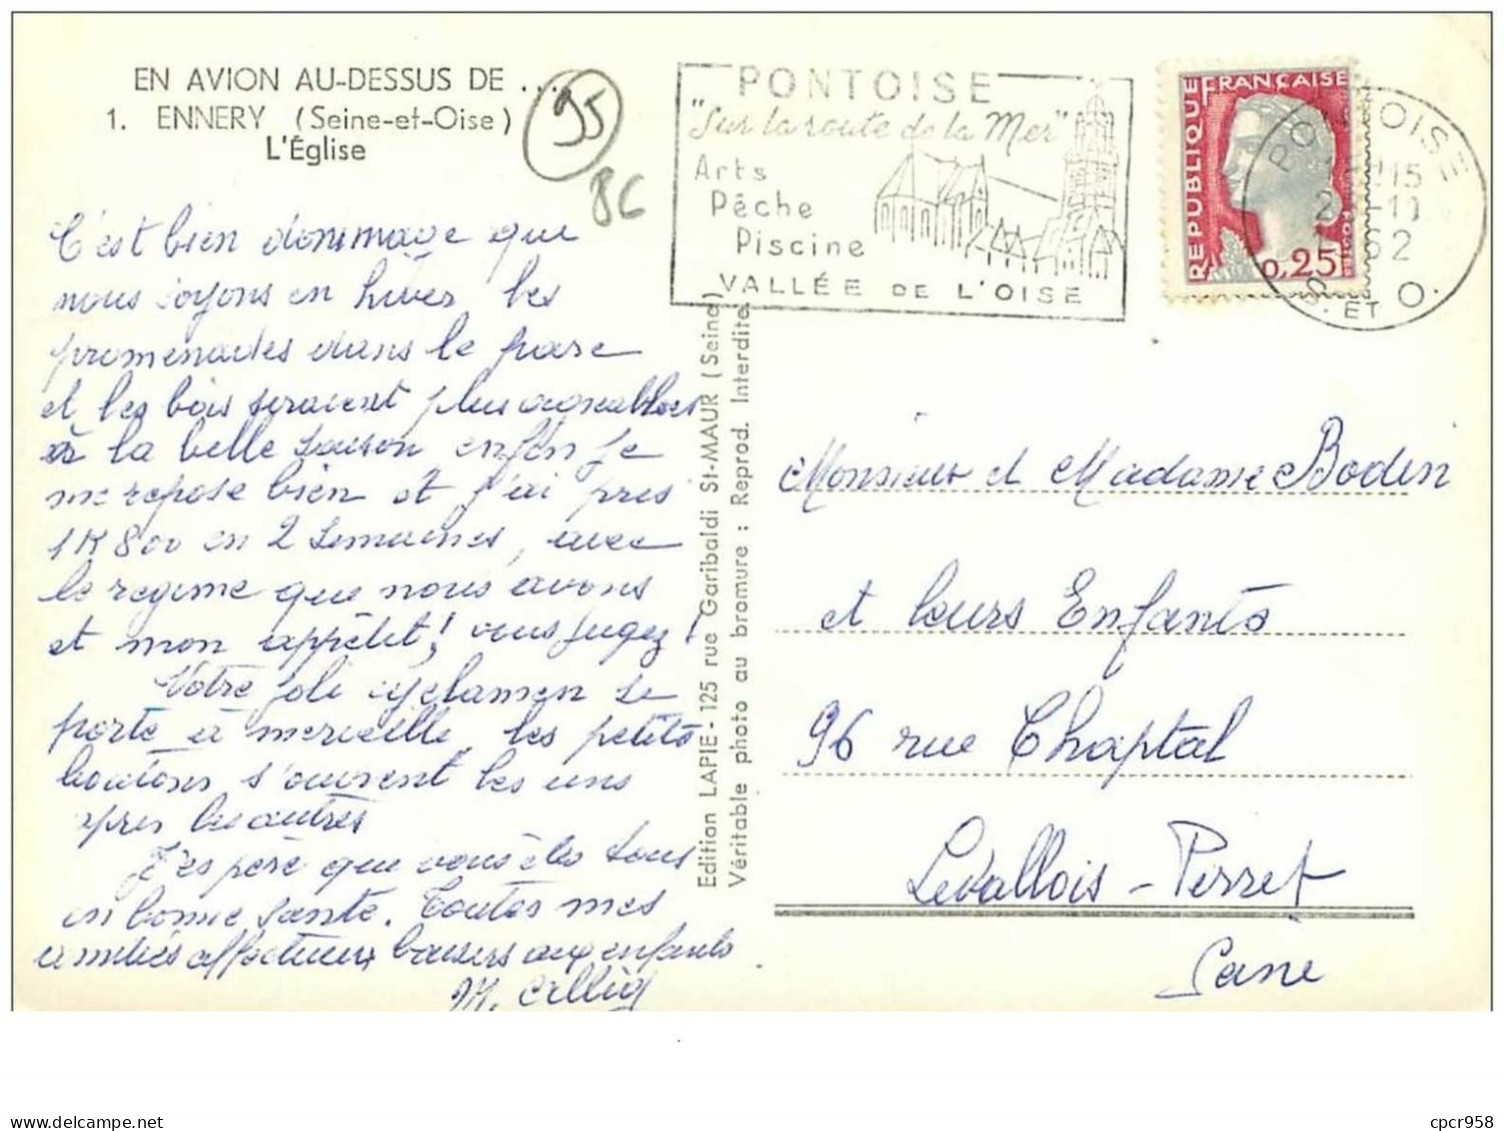 EN AVION AU-DESSUS DE ...
1. ENNERY (Seine-et-Oise)
L'Église
95
BC
C'est bien dommage que
nous soyons en hiver les
promenades dans le parc
et les bois seraient plus agreables
à la belle saison enfin je
me repose bien et j'ai pris
1K 800 en 2 semaines, avec
le regime que nous avons
et mon appétit! vous jugez!
Votre joli cyclamen se
porte à merveille, les petits
boutons s'ouvrent les uns
apres les autres
J'espère que vous êtes tous
en bonne santé. Toutes mes
amitiés affectueux baisers aux enfants
M.
Edition LAPIE - 125 rue Garibaldi St-MAUR (Seine)
Véritable photo au bromure : Reprod. Interdite
PONTOISE
"Sur la route de la Mer"
Arts
Pêche
Piscine
VALLÉE DE L'OISE
REPUBLIQUE FRANÇAISE
0,25
PONTOISE
S. ET O.
Monsieur et Madame Boden
et leurs Enfants
96 rue Chaptal
Levallois-Perret
Seine
cpcr958